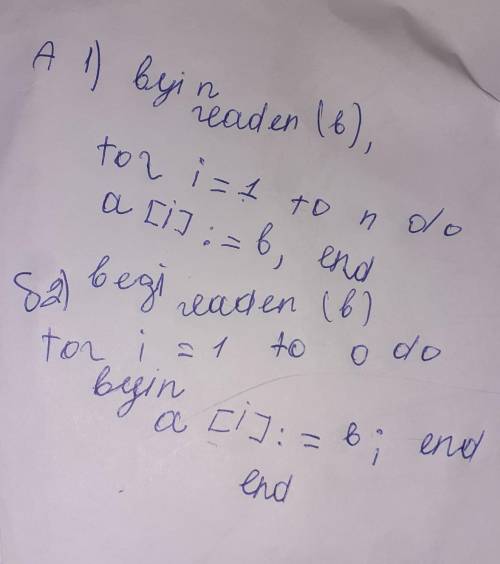 A 1) begin
readen (b),
for i = 1 to n do
a [i] := b, end
б2) begi
readen (b)
for i = 1 to 0 do
begin
a [i] := b; end
end